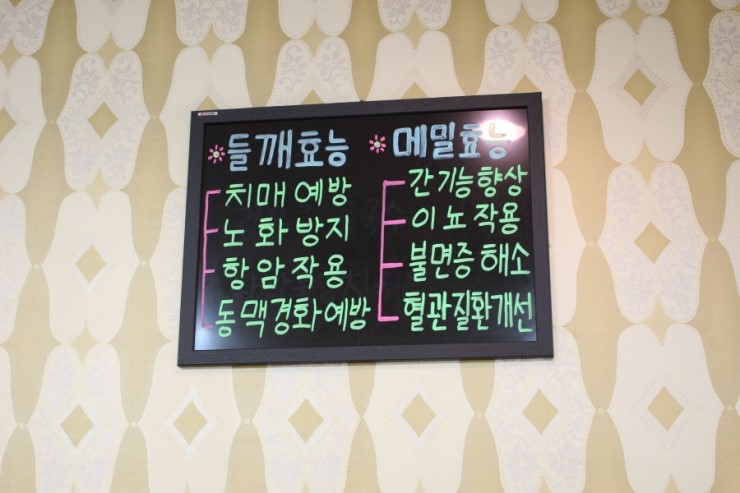 들깨효능
치매예방
노화방지
항암작용
동맥경화예방
메밀효능
간기능향상
이뇨작용
불면증해소
혈관질환개선